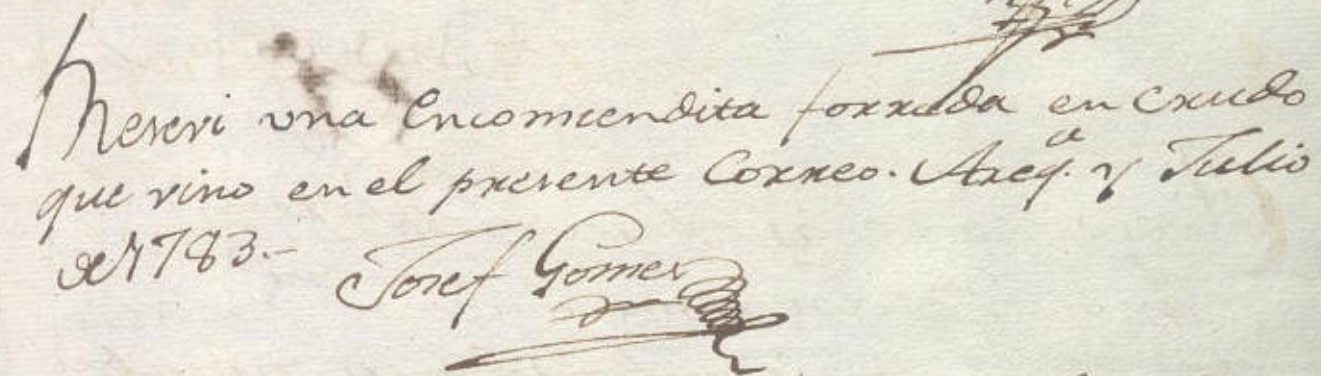 Reseví una Encomiendita forrada en Crudo
que vino en el presente Correo. Areq.ª y Julio
de 1783.-
Josef Gomez